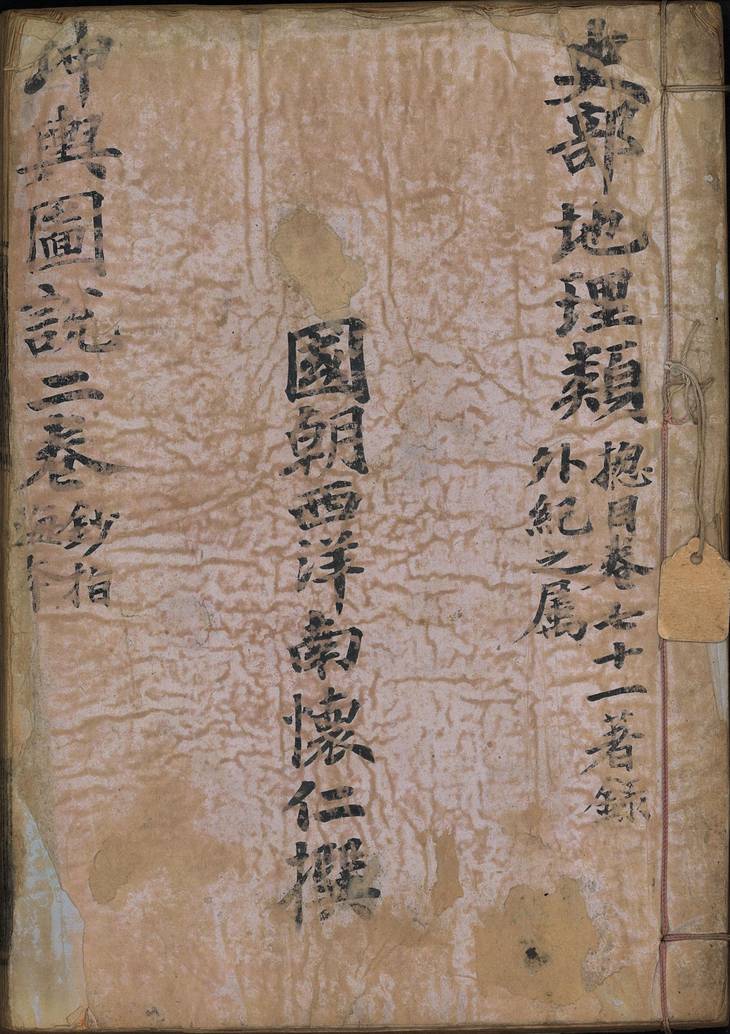 史部地理類
揔目卷七十一著錄
外紀之属
國朝西洋南懷仁撰
坤輿圖説二卷
鈔指
海本